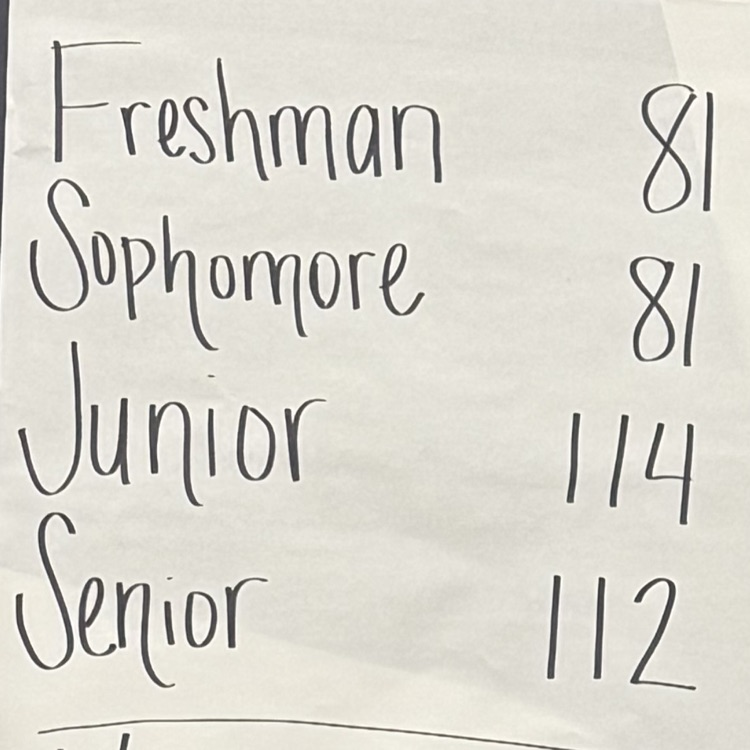 Freshman 81
Sophomore 81
Junior 114
Senior 112